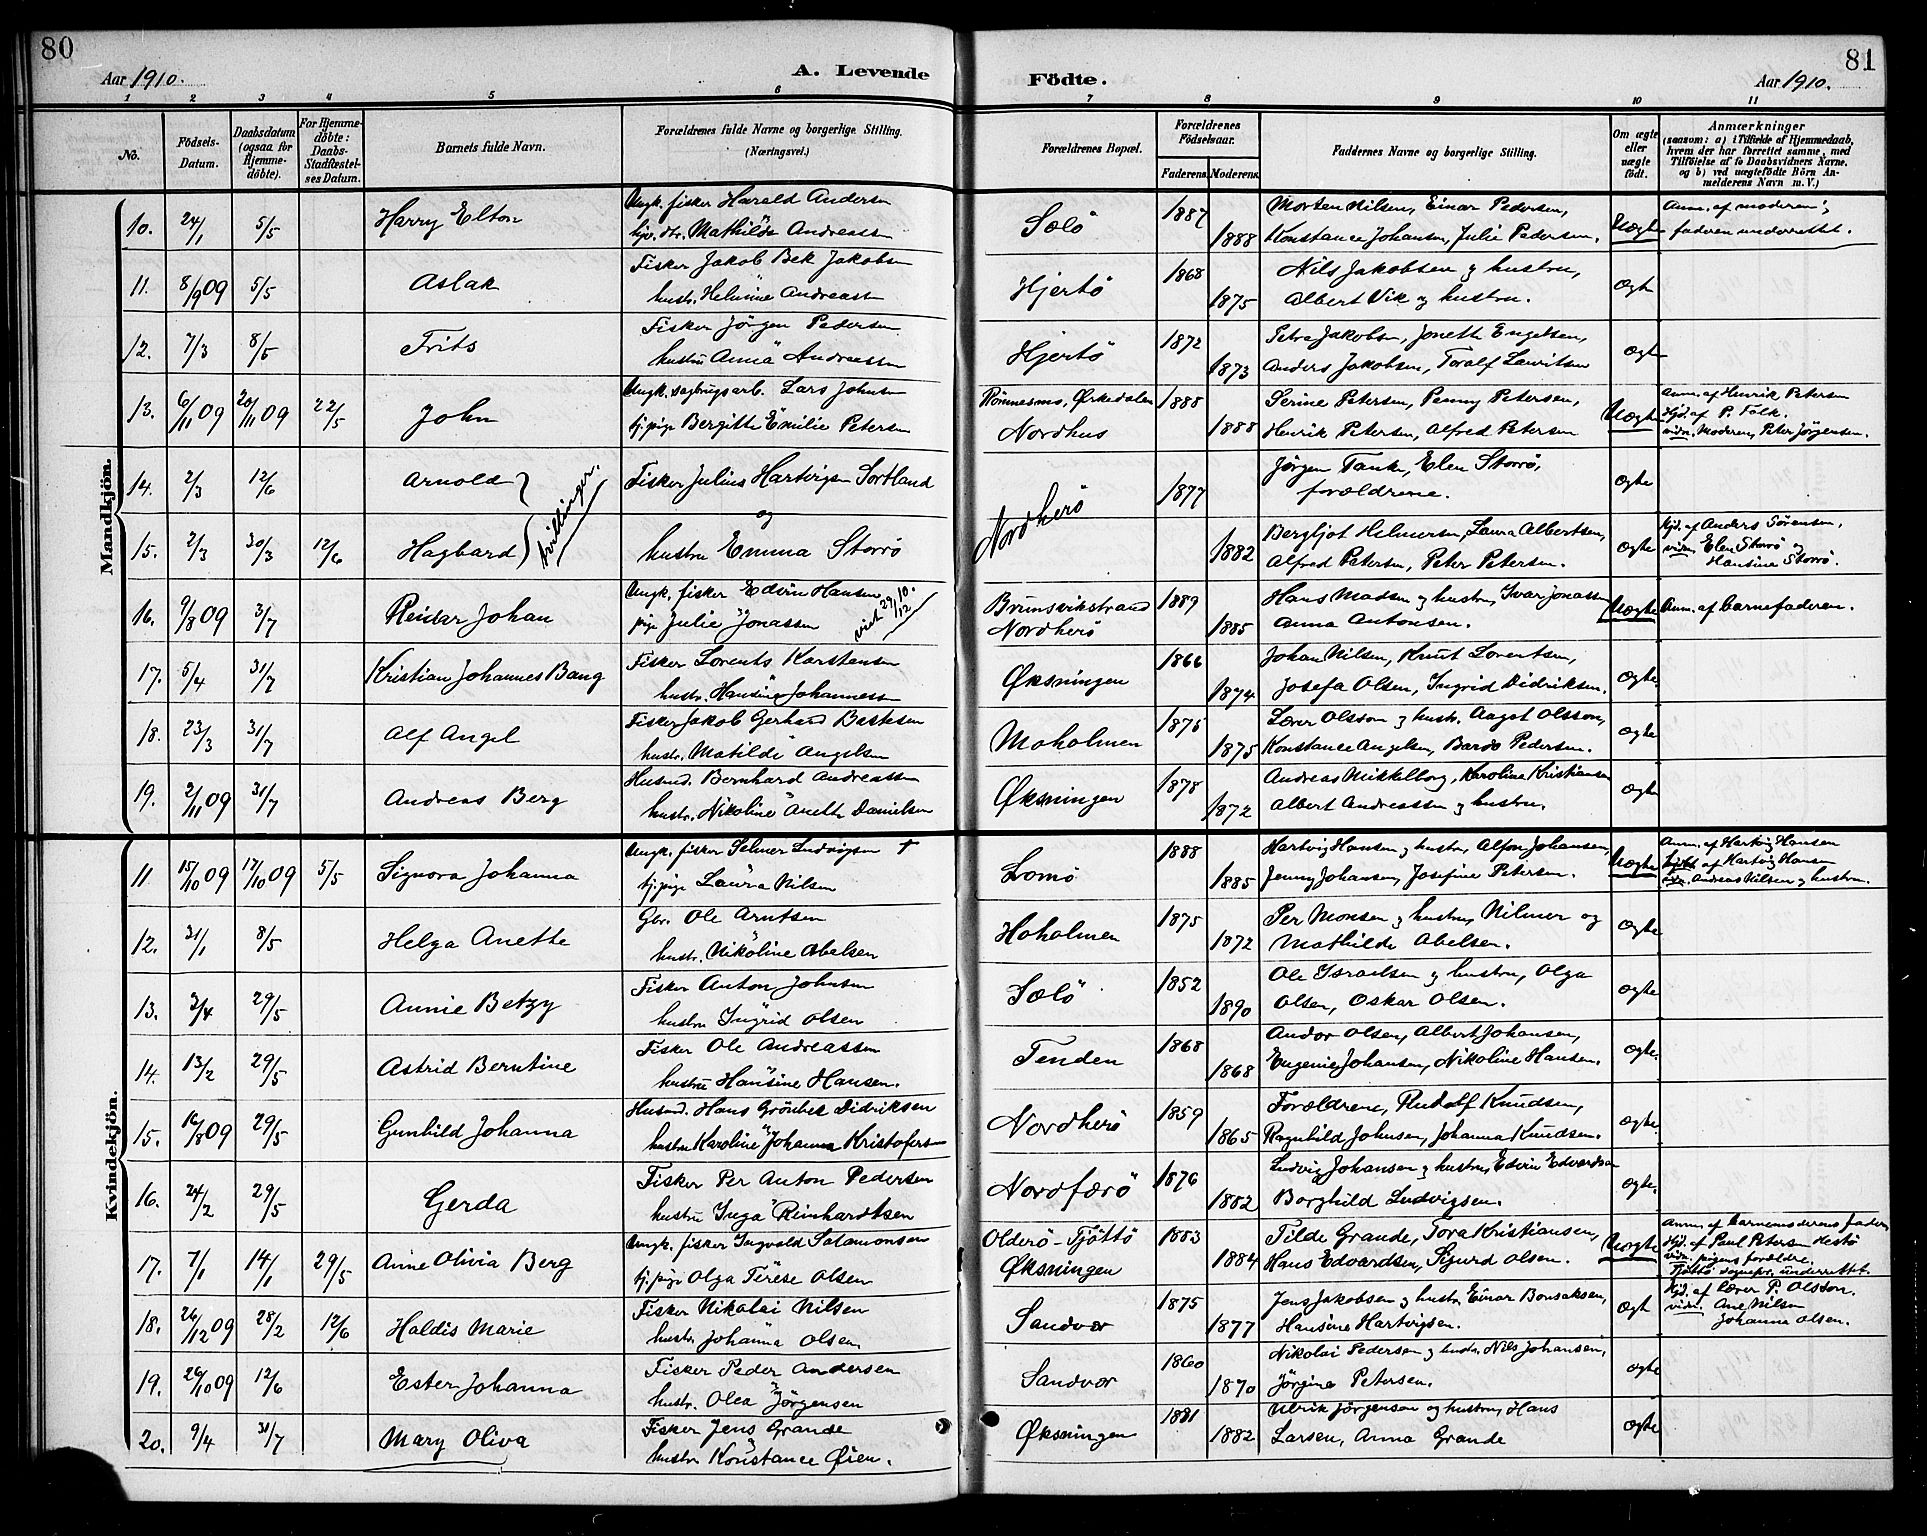 80
Aar 1910.
A. Levende
Födte.
Aar 1910.
81
1 2 3 4 5 6 7 8 9 10 11
No.
Födsels-Datum.
Daabsdatum (ogsaa for Hjemme-döbte).
For Hjemme-döbte: Daabs-Stadfæstel-ses Datum.
Barnets fulde Navn.
Forældrenes fulde Navne og borgerlige Stilling.
(Næringsvei.)
Forældrenes Bopæl.
Forældrenes Födselsaar.
Faderens. Moderens.
Faddernes Navne og borgerlige Stilling.
Om ægte eller uægte födt.
Anmærkninger
(saasom: a) i Tilfælde af Hjemmedaab,
hvem der har forrettet samme, med
Tilföielse af to Daabsvidners Navne.
og b) ved uægtefödte Börn An-
melderens Navn m. V.)
Mandkjön.
10. 24/1 5/5 Harry Elton Ungk. fisker Harald Andersen Sælö 1887 Morten Nilsen, Einar Pedersen, Uægte Anm. af moderen;
hjv. dtr. Mathilde Andreassen 1888 Konstance Johansen, Julie Pedersen. faderen underrettet.
11. 8/9 09 5/5 Aslak Fisker Jakob Bek Jakobsen Hjertö 1868 Nils Jakobsen og hustru, Ægte
hustr. Helmine Andreassen 1875 Albert Vik og hustru.
12. 7/3 8/5 Frits Fisker Jörgen Pedersen Hjertö 1872 Petra Jakobsen, Jonette Engelsen, Ægte
hustru Anna Andreassen 1873 Anders Jakobsen, Toralf Lauritsen
13. 6/11 09 20/11 09 22/5 John Ungk. sagbrugsarb. Lars Johnsen Rönnesmo, Ørkedalen 1888 Serine Petersen, Penny Petersen, Uægte Anm. af Henrik Petersen
tj. pige Bergitte Emilie Petersen Nordhus 1888 Henrik Petersen, Alfred Petersen Hjd. af P. Falk.
vidn. Moderen, Peter Jörgensen.
14. 2/3 12/6 Arnold Fisker Julius Hartvigsen Sortland Nordherö 1877 Jörgen Tank, Elen Storrö, Ægte
forældrene.
tvillinger.
og
15. 2/3 30/3 12/6 Hagbard hustru Emma Storrö 1882 Bergljot Helmersen, Laura Albertsen, Ægte Hjd. af Anders Sörensen,
Alfred Petersen, Peter Petersen. vidn. Elen Storrö og
Hansine Storrö.
16. 9/8 09 3/7 Reidar Johan Ungk. fisker Edvin Hansen Brunsvikstrand 1889 Hans Madsen og hustru, Ivar Jonassen Uægte Anm. af barnefaderen.
pige Julie Jonassen viet 29/10. 12 Nordherö 1885 Anna Antonsen.
17. 5/4 31/7 Kristian Johannes Bang Fisker Lorents Karstensen Øksningen 1866 Johan Nilsen, Knut Lorentsen, Ægte.
hustr. Hansine Johannessen 1874 Josefa Olsen, Ingrid Didriksen.
18. 23/3 31/7 Alf Angel Fisker Jakob Gerhard Bastesen Moholmen 1875 Lærer Olsson og hustr. Aagot Olsson, Ægte
hustr. Matilde Angelsen 1875 Konstance Angelsen, Bardo Pedersen.
19. 2/11 09 31/7 Andreas Berg Husmd. Bernhard Andreassen Øksningen 1878 Andreas Mikkelborg, Karoline Kristiansen Ægte
hustr. Nikoline Anette Danielsen 1872 Albert Andreassen og hustru.
Kvindekjön.
11 15/10 09 17/10 09 5/5 Signora Johanna Ungk. fisker Selmer Ludvigsen † Lomö 1888 Hartvig Hansen og hustru, Alfon Johansen, Uægte Anm. af Hartvig Hansen
tj. pige Laura Nilsen 1885 Jenny Johansen, Josefine Petersen. hjdbt af Hartvig Hansen
vidn. Andreas Nilsen og hustru.
12. 31/1 8/5 Helga Anette Gbr. Ole Arntsen Hoholmen 1875 Per Monsen og hustru, Nilmer og Ægte
hustr. Nikoline Abelsen 1872 Mathilde Abelsen.
13. 3/4 29/5 Annie Betzy Fisker Anton Johnsen Sælö 1852 Ole Israelsen og hustru, Olga Ægte
hustru Ingrid Olsen 1890 Olsen, Oskar Olsen.
14. 13/2 29/5 Astrid Berntine Fisker Ole Andreassen Tenden 1868 Andor Olsen, Albert Johansen, Ægte.
hustru Hansine Hansen. 1868 Eugenie Johansen, Nikoline Hansen.
15. 16/8 09 29/5 Gunhild Johanna Husmd. Hans Grönbek Didriksen Nordherö 1859 Forældrene, Rudolf Knudsen, Ægte.
hustru Karoline Johanna Kristofersen 1865 Ragnhild Johnsen, Johanna Knudsen.
16. 24/2 29/5 Gerda Fisker Per Anton Pedersen Nordfærö 1876 Ludvig Johansen og hustru, Edvin Edvardsen Ægte.
hustru Inga Reinhardtsen 1882 Borghild Ludvigsen.
17. 7/1 14/1 29/5 Anne Olivia Berg Ungk. fisker Ingvald Salamonsen Olderö-Tjöttö 1883 Tilde Grande, Tora Kristiansen, Uægte Anm. af barnemoderens fader,
tj. pige Olga Terese Olsen Øksningen 1884 Hans Edvardsen, Sigurd Olsen. Hjd. af Paul Petersen Hestö
vidn. pigens forældre.
Tjöttö sognepr. underrettet.
18. 26/12 09 28/2 12/6 Haldis Marie Fisker Nikolai Nilsen Sandvær 1875 Jens Jakobsen og hustru, Einar Bonsaksen, Ægt Hjd. af Lærer P. Olsson.
hustr. Johanna Olsen. 1877 Hansine Hartvigsen. vidn. Ane Nilsen
Johanna Olsen.
19. 26/10 09 12/6 Ester Johanna Fisker Peder Andersen Sandvær 1860 Nikolai Pedersen og hustr. Nils Johansen, Ægte
hustr. Olea Jörgensen 1870 Jörgine Petersen.
20. 9/4 31/7 Mary Oliva Fisker Jens Grande Øksningen 1881 Ulrik Jörgensen og hustru, Hans Ægte
hustru Konstance Øien. 1882 Larsen, Anna Grande